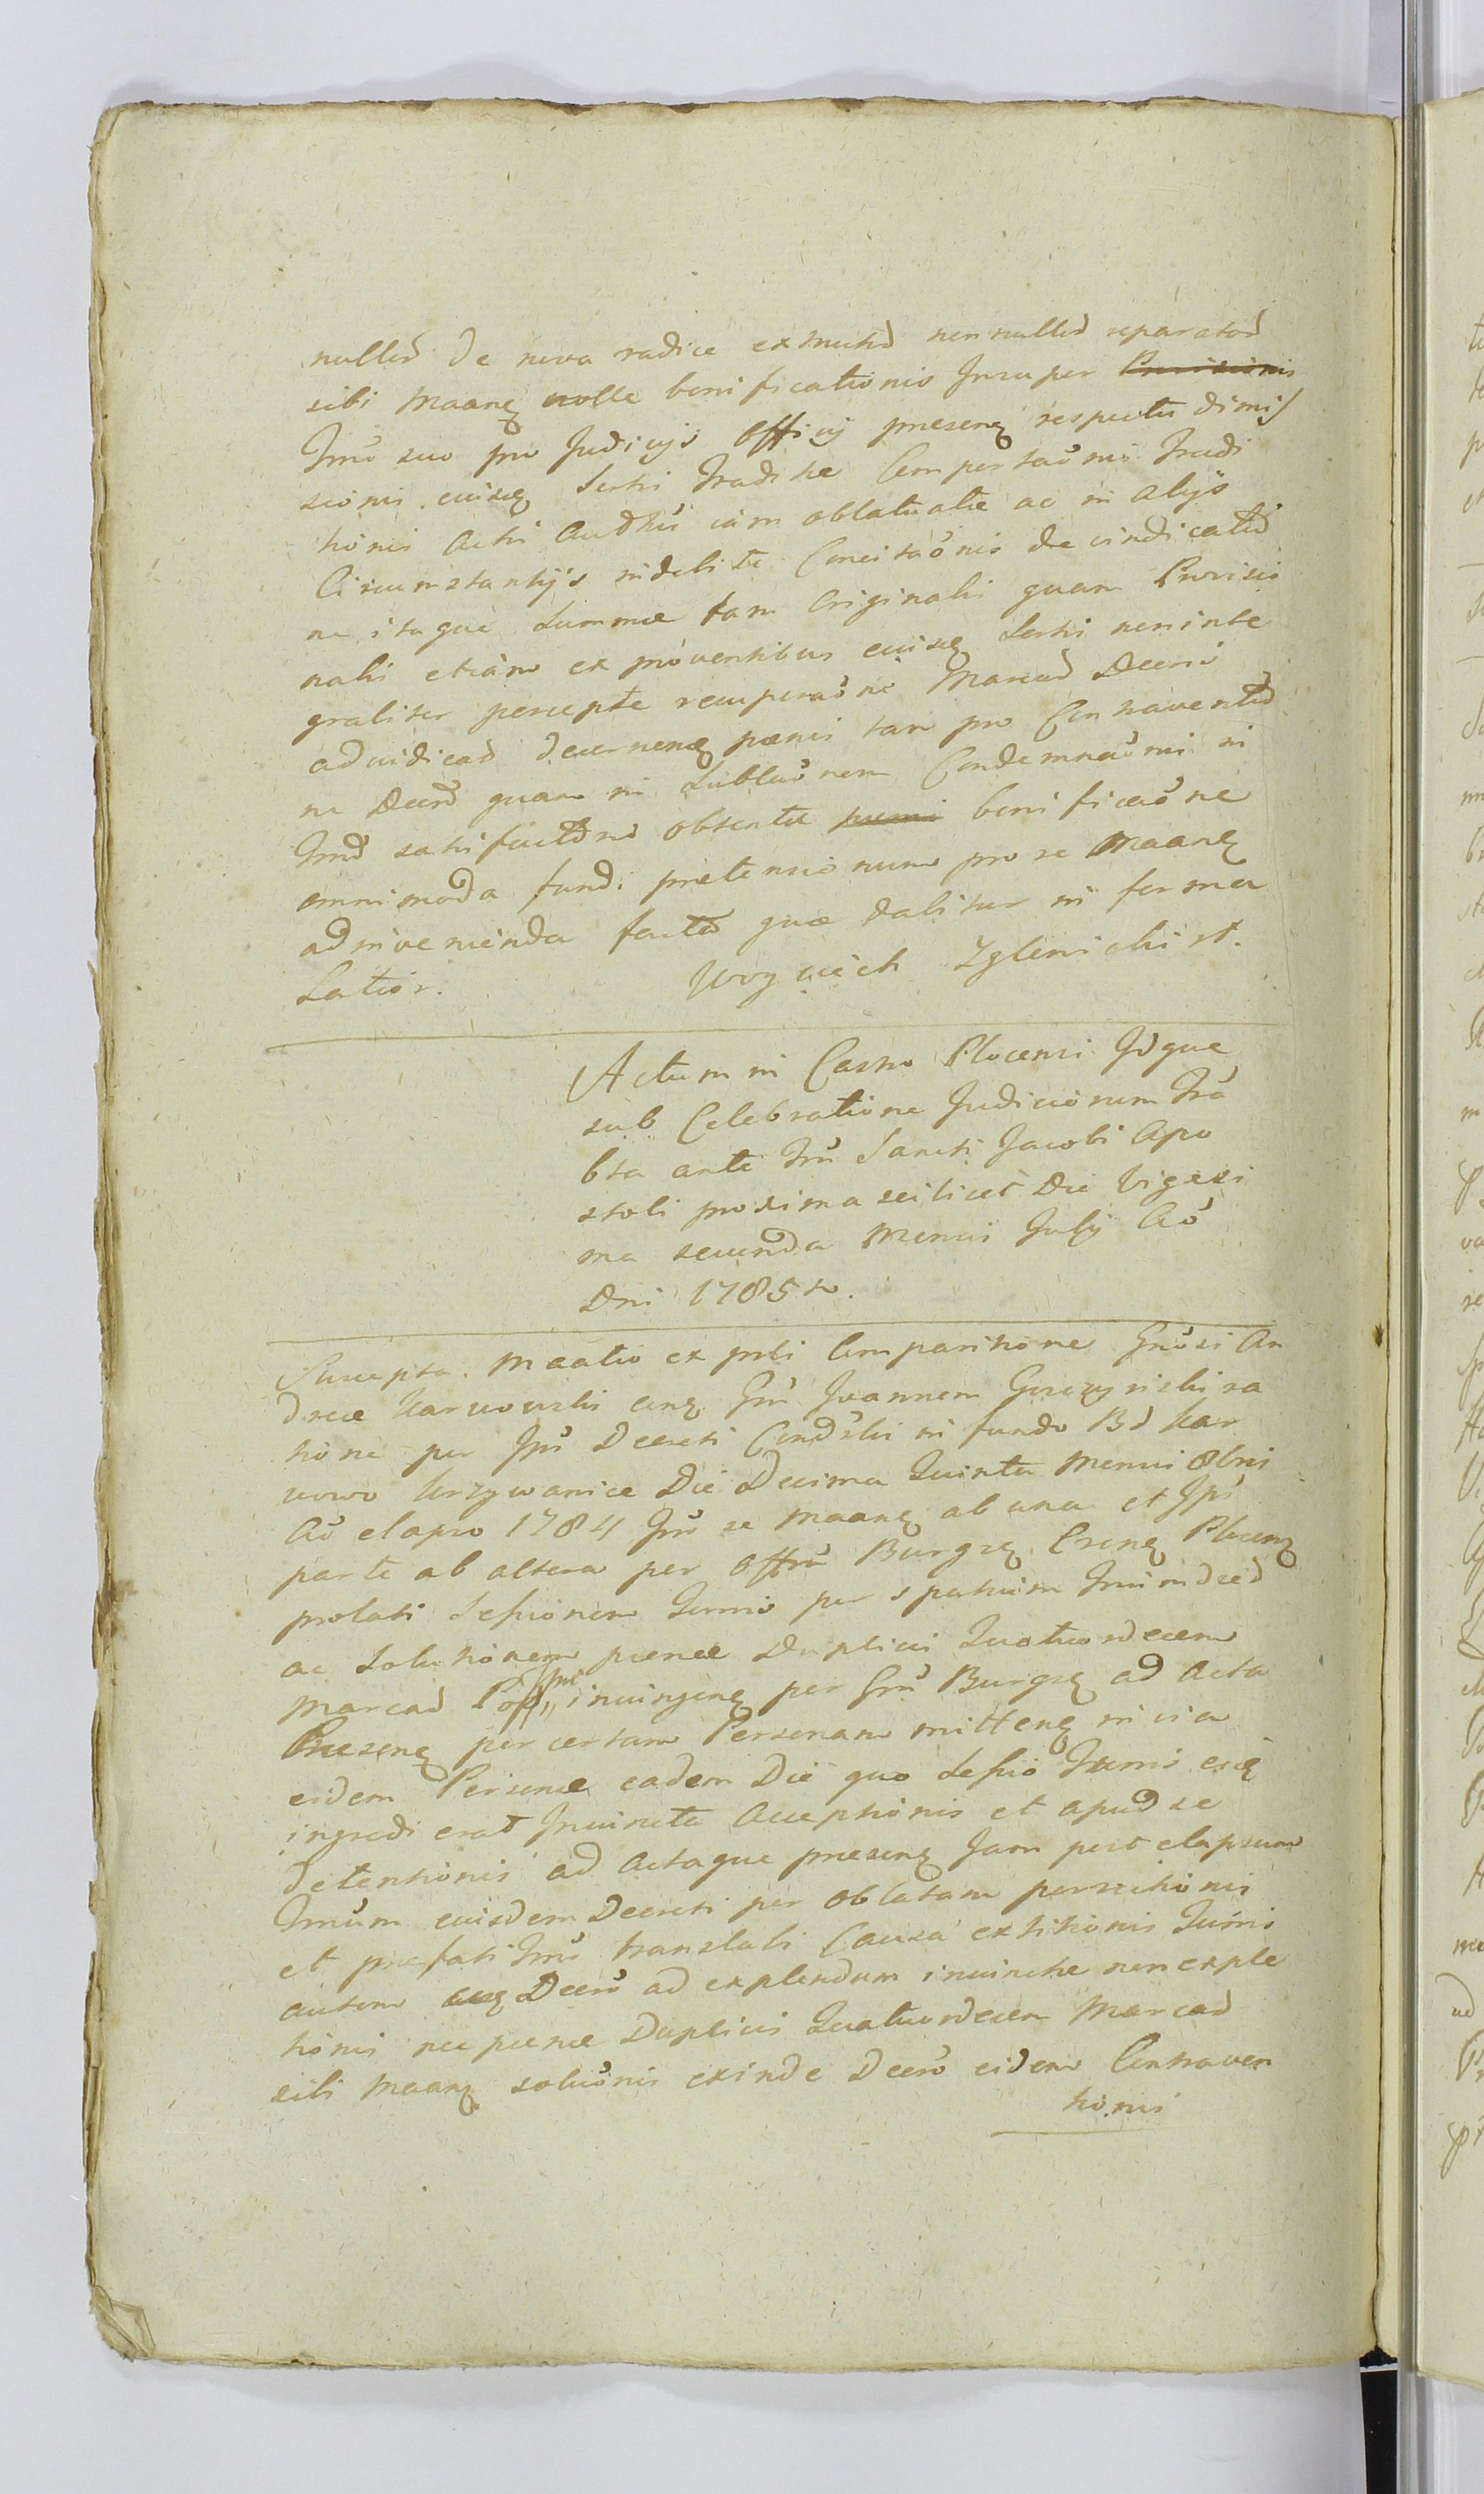 nullis de nova radice extructis nonnullis reparatis
sibi Maanꝫ nolle bonificationis Insuper Provisionis
Tmō suo pro Judicijs Officij presenꝫ respectu dimis
sionis eiusꝫ Sortis Traditæ Comportaōnis Tradi
tionis Actis Authūs iam oblatuatæ ac in Alijs
Circumstantijs indebite Concitaōnis de vindicatis
ne itaque Summæ tam Originalis quam Provisio
nalis etiam ex proventibus eiusꝫ Sortis noninte
graliter percepte recuperaōne Marcas Decrō
adiudicas decernenꝫ pœnis tam pro Contraventis
ne Decrō quam in Sublevōnem Condemnaōnis in
Tmō satisfactōne obtentæ bonificaōne
omnimoda fundi prætensionum pro se Maanꝫ
adinvenienda factis quæ dabitur in forma
Latior. Woyciech Zglinicki st.
Actum in Castro Plocensi Idque
sub Celebratione Judiciorum Fra
bta ante Frū Sancti Jacobi Apo
stoli proxima scilicet Die Vigesi
ma secunda Mensis Julij Aō
Dni 1785to.
Suscepta. Maatio ex prti Comparitione Gnōsi An
dreæ Karwowski conꝫ Gnū Joannem Gorczynski ra
tione per Ipū Decreti Condēlis in fundo Bd Kar
wowo Krzywanice Die Decima Quinta Mensis 8bris
Aō elapso 1784 Inō se Maanꝫ ab una et Ipū
parte ab altera per Offm̄ Burgꝫ Crenꝫ Plocenꝫ
prolati Sessionem Turris per spatium Trium dies
ac Solutionem pœnæ Duplicis Quatuordecem
Marcas Pop Ipū iniungenꝫ per Gnū Burgꝫ ad Acta
Presenꝫ per certam Personam mittenꝫ in via
eidem Personæ eadem Die quo Sessio Turris eiꝫ
ingredi erat Iniuncta Acceptionis et apud se
detentionis ad Actaque presenꝫ Jam post elapsum
Tmūm eiusdem Decreti per oblatam porrectionis
et præfati Tmō translati Causa extitionis Turris
autem eiuꝫ Decrō ad explendum iniunctæ non exple
tionis nec pœnæ Duplicis Quatuordecem Marcas
sibi Maanꝫ soluōnis exinde Decrō eidem Contraven
tionis